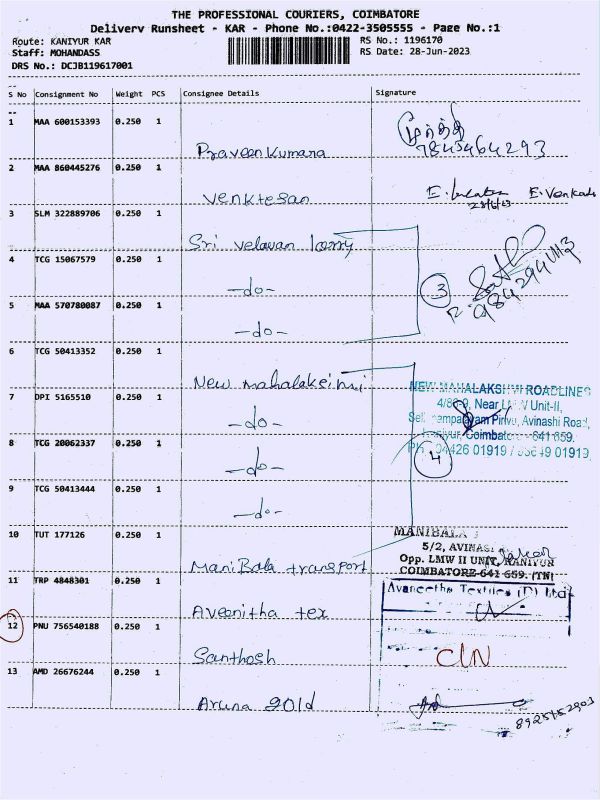 THE PROFESSIONAL COURIERS, COIMBATORE
Delivery Runsheet - KAR - Phone No.:0422-3505555 - Page No.:1
Route: KANIYUR KAR
RS No.: 1196170
Staff: MOHANDASS
RS Date: 28-Jun-2023
DRS No.: DCJB119617001
S No Consignment No Weight PCS Consignee Details Signature
1 MAA 600153393 0.250 1
முர்த்தி
7845464293
Praveen Kumara
2 MAA 860445276 0.250 1
Venktesan
E. Venkads
3 SLM 322889706 0.250 1
Sri velavan lorry
4 TCG 15067579 0.250 1
-do-
3
5 MAA 570780087 0.250 1
-do-
6 TCG 50413352 0.250 1
New mahalakeimi
NEW MAHALAKSHMI ROADLINES
7 DPI 5165510 0.250 1
4/86-9, Near LMW Unit-II,
-do-
Pirivu, Avinashi Road,
Kaniyur, Coimbatore - 641 659.
8 TCG 20062337 0.250 1
04426 01919
4
-do-
9 TCG 50413444 0.250 1
-do-
10 TUT 177126 0.250 1
MANIBALA
5/2, AVINASI
Opp. LMW II UNIT, KANIYUR
COIMBATORE-641 659. (TN)
ManiBala transport
11 TRP 4848301 0.250 1
Avaneetha Textiles (P) Ltd
Aveenitha tex
12 PNU 756540188 0.250 1
CLN
Santhosh
13 AMD 26676244 0.250 1
Aruna gold